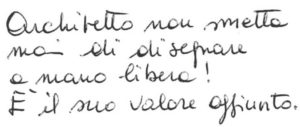 Architetto non smetta
mai di disegnare
a mano libera!
È il suo valore aggiunto.